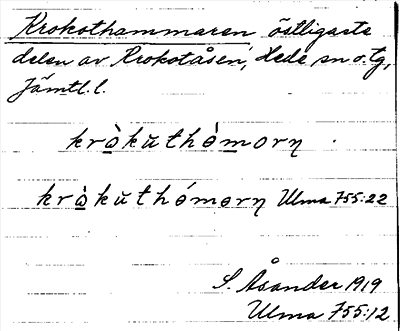 Krokothammaren östligaste
delen av Krokotåsen, Hede sn o. tg,
Jämtl. l.
kròkŭthòmorn
kròkŭthómorn Ulma 755:22
S. Åsander 1919
Ulma 755:12